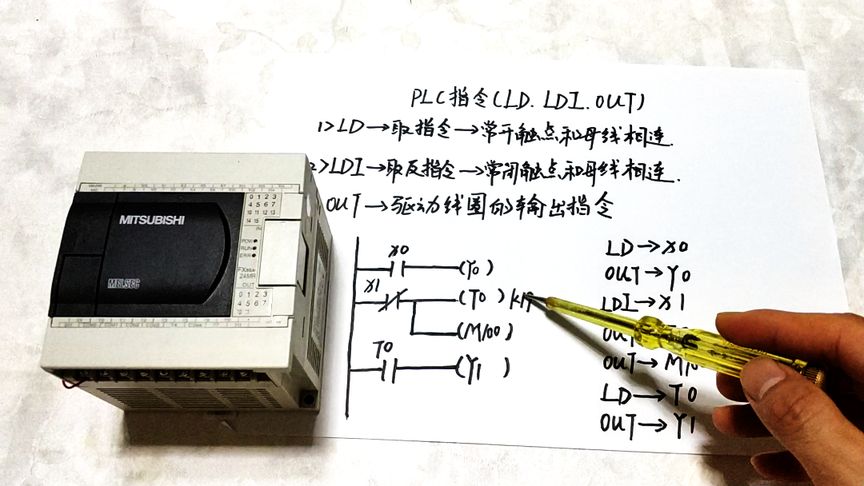 PLC指令(LD.LDI.OUT)
1>LD→取指令→常开触点和母线相连.
2>LDI→取反指令→常闭触点和母线相连.
OUT→驱动线圈的输出指令
MITSUBISHI
MELSEC
0 1 2 3
4 5 6 7
IN
POW
RUN
ERR
24MR
OUT
0 1 2 3
4 5 6 7
X0
(Y0)
X1
(T0)
(M100)
T0
(Y1)
LD→X0
OUT→Y0
LDI→X1
OUT
OUT→M1
LD→T0
OUT→Y1